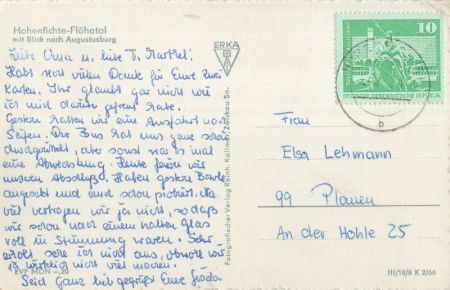 Hohenfichte-Flöhatal
mit Blick nach Augustusburg
Liebe Oma u. liebe T.
Habt recht vielen Dank für Eure zwei
Karten. Ihr glaubt gar nicht wie
ich mich darüber gefreut habe.
Gestern hatten wir eine Ausfahrt nach
Seifen. Der Bus hat uns ganz schön
durchgerüttelt, aber sonst war es mal
eine Abwechslung. Heute feiern wir
unseren Abschluß. Haben gestern Bowle
angesetzt und auch schon probiert. Na
viel vertragen wir ja nicht, so daß
wir schon nach einem halben Glas
voll in Stimmung waren. Sehr
erholt sehe ich nicht aus, obwohl wir
ja wirklich nicht viel machen.
Seid ganz lieb gegrüßt Eure Gisela
EVP MDN -,20
ERKA
Fotografischer Verlag Reinh. Kallmer, Zwickau Sa.
10
DEUTSCHE DEMOKRATISCHE REPUBLIK
b
Frau
Elsa Lehmann
99 Plauen
An der Hohle 25
III/18/6 K 2/66